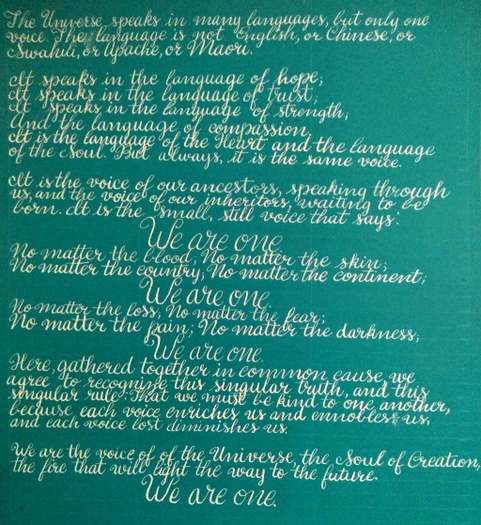 The Universe speaks in many languages, but only one
voice. The language is not English, or Chinese, or
Swahili, or Apache, or Maori.
It speaks in the language of hope;
It speaks in the language of trust;
It speaks in the language of strength;
And the language of compassion,
It is the language of the Heart and the language
of the Soul. But always, it is the same voice.
It is the voice of our ancestors, speaking through
us, and the voice of our inheritors, waiting to be
born. It is the small, still voice that says:
We are one.
No matter the blood; No matter the skin;
No matter the country; No matter the continent;
We are one.
No matter the loss; No matter the fear;
No matter the pain; No matter the darkness;
We are one.
Here, gathered together in common cause we
agree to recognize this singular truth, and this
singular rule: That we must be kind to one another,
because each voice enriches us and ennobles us,
and each voice lost diminishes us.
We are the voice of of the Universe, the Soul of Creation,
the fire that will light the way to the future.
We are one.